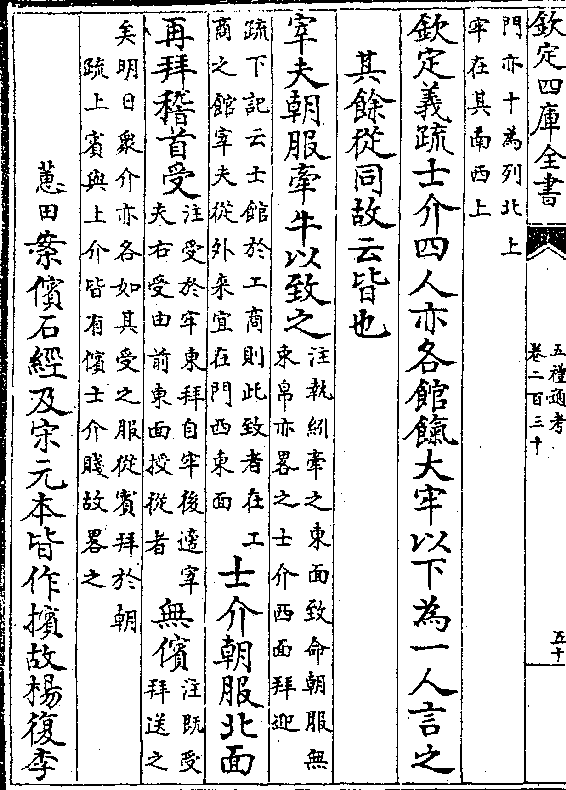 欽定四庫全書
五禮通考
卷二百三十
五十
門亦十為列北上
牢在其南西上
欽定義疏士介四人亦各館餼大牢以下為一人言之
其餘從同故云皆也
宰夫朝服牽牛以致之
注執紖牽之東面致命朝服無
束帛亦畧之士介西面拜迎
疏下記云士館於工商則此致者在工
商之館宰夫從外來宜在門西東面
士介朝服北面
再拜稽首受
注受於牢東拜自牢後適宰
夫右受由前東面授從者
無儐
注既受
拜送之
矣明日衆介亦各如其受之服從賓拜於朝
疏上賓與上介皆有儐士介賤故畧之
蕙田案儐石經及宋元本皆作擯故楊復李